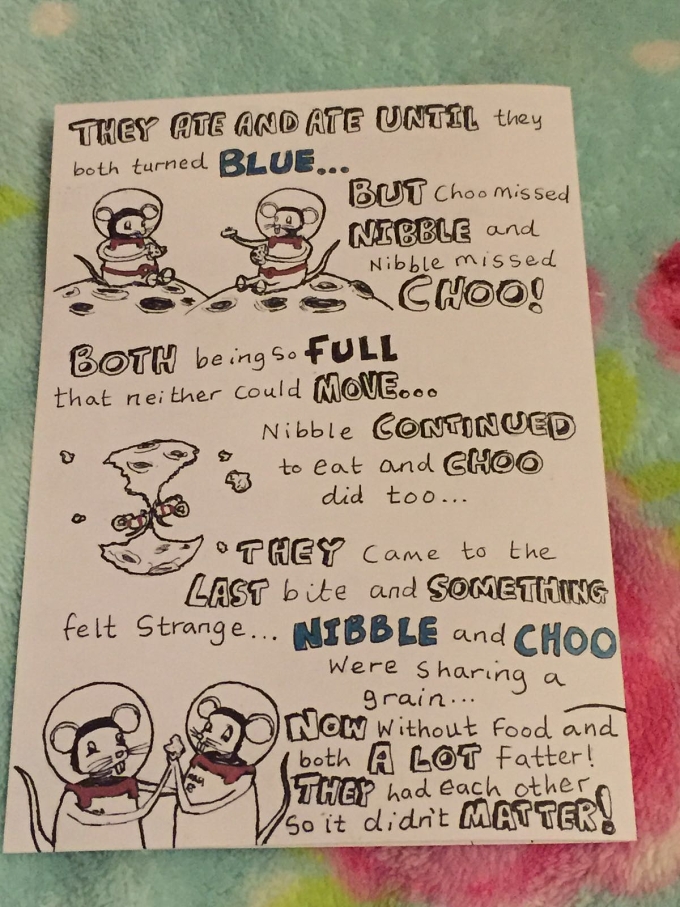 THEY ATE AND ATE UNTIL they
both turned BLUE...
BUT Choo missed
NIBBLE and
Nibble missed
CHOO!
BOTH being so FULL
that neither could MOVE...
Nibble CONTINUED
to eat and CHOO
did too...
THEY came to the
LAST bite and SOMETHING
felt Strange... NIBBLE and CHOO
were sharing a
grain...
NOW without food and
both A LOT fatter!
THEY had each other
So it didn't MATTER!